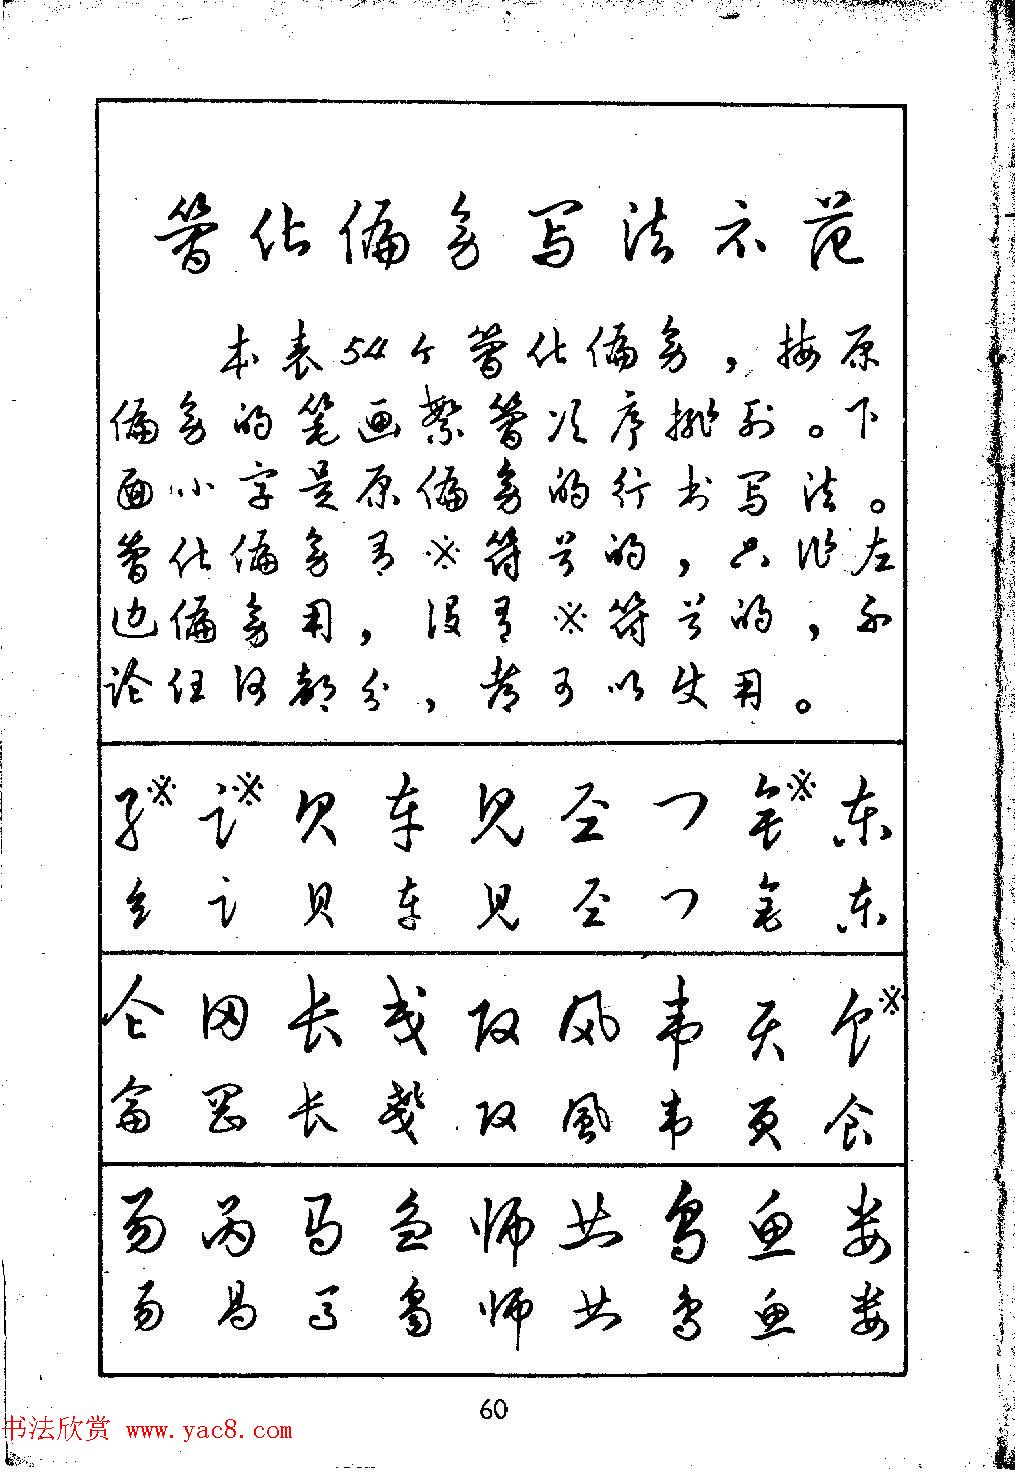 简化偏旁写法示范
本表54个简化偏旁，按原
偏旁的笔画繁简顺序排列。下
面小字是原偏旁的行书写法。
简化偏旁有※符号的，只作左
边偏旁用，没有※符号的，不
论任何部分，都可以使用。
※ 讠※ 贝 车 见 乛 ※ 东
讠 贝 车 见 乛 东
仑 冈 长 风 韦 饣※
侖 岡 长 風 韦 页 食
马 师 鸟 鱼 娄
师 鱼 娄
60
书法欣赏 www.yac8.com